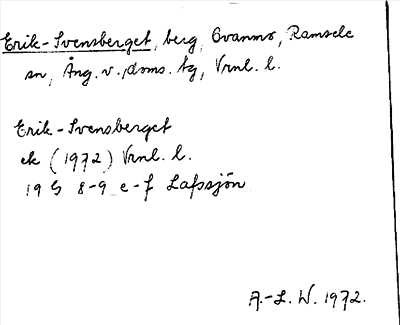 Erik-Svensberget, berg, Ovanmo, Ramsele
sn, Ång. v. doms. tg, Vrnl. l.
Erik-Svensberget
ek (1972) Vrnl. l.
19 G 8-9 e-f Lafssjön
A.-L. W. 1972.